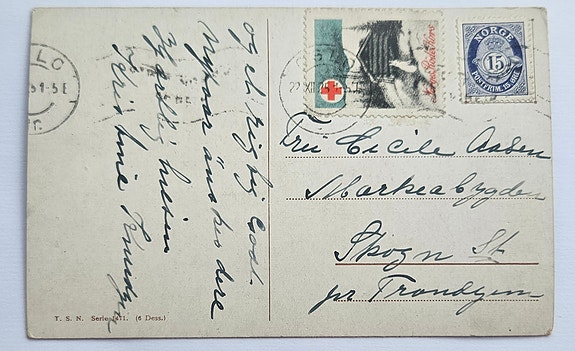 og et rigtig God-
nytaar ønskes dere
Hjærtlig hilsen
Kristine
T. S. N. Serie 1471. (6 Dess.)
NORGE
15
POSTFRIM. 15 ØRE
22 XII 25
Fru Cecilie Aasen
Markabygden
Skogn St.
pr Trondhjem